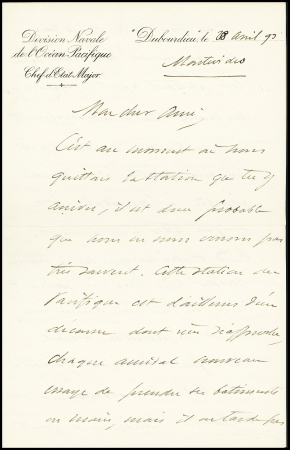 Division Navale
de l'Océan Pacifique
Chef d'Etat-Major
"Dubourdieu", le 28 avril 9
Montevideo
Mon cher Ami,
C'est au moment où nous
quittons la station que tu y
arrives, il est donc probable
que nous ne nous verrons pas
très souvent. Cette station du
Pacifique est d'ailleurs d'un
décousu dont rien n'approche,
chaque amiral nouveau
essaye de prendre ses bâtiments
en mains, mais il ne tarde pas